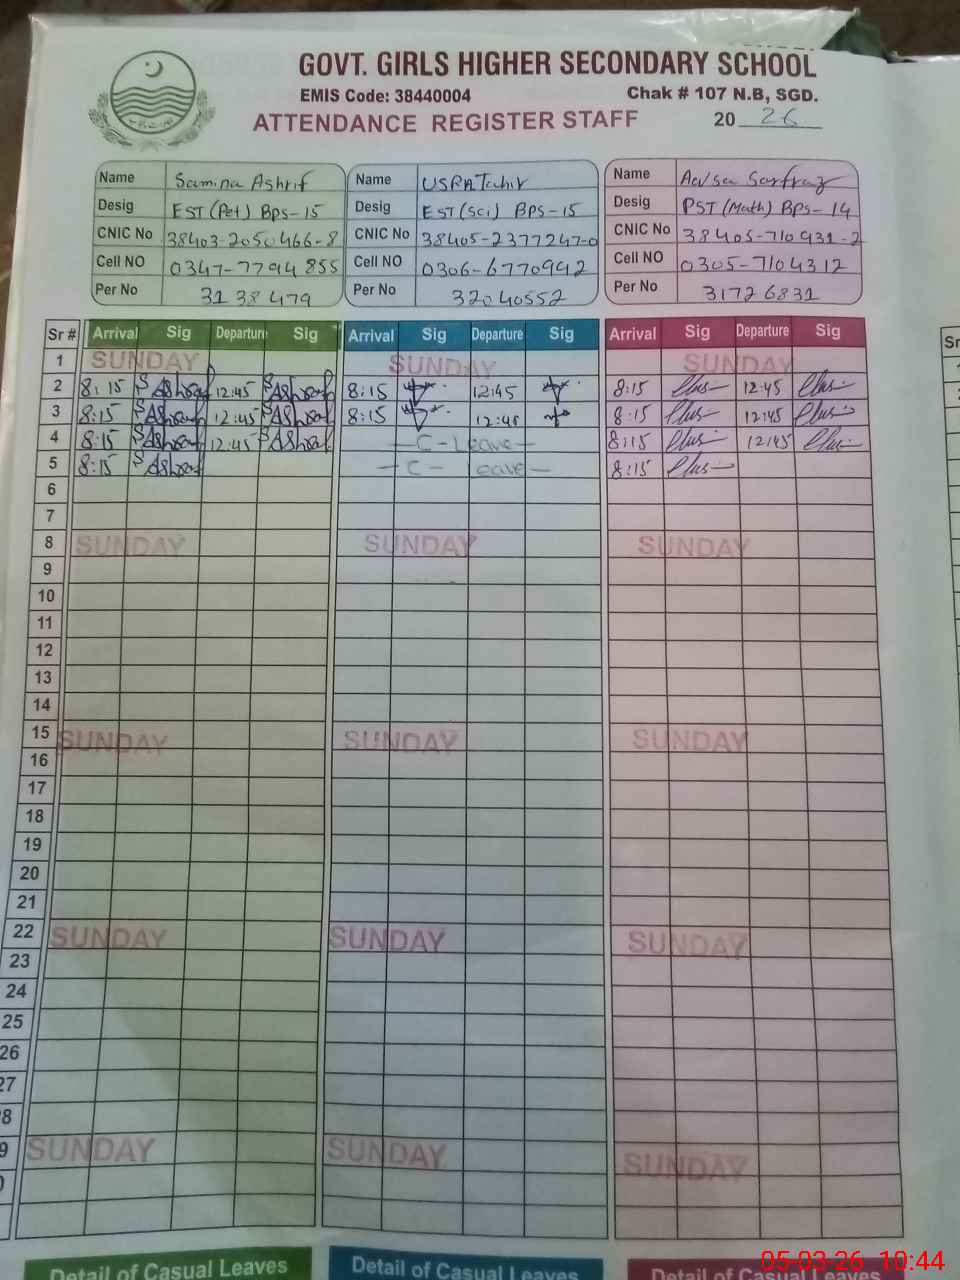 GOVT. GIRLS HIGHER SECONDARY SCHOOL
EMIS Code: 38440004 Chak # 107 N.B, SGD.
ATTENDANCE REGISTER STAFF 20 26
Name Samina Ashrif Name USRA Tahir Name Sarfraz
Desig EST (Pet) BPS-15 Desig EST (Sci) BPS-15 Desig PST (Math) BPS-14
CNIC No 38403-2050466-8 CNIC No 38405-2377247-0 CNIC No 38405-710931-2
Cell NO 0347-7794855 Cell NO 0306-6770942 Cell NO 0305-7104312
Per No 3138479 Per No 32040552 Per No 31726831
Sr # Arrival Sig Departure Sig Arrival Sig Departure Sig Arrival Sig Departure Sig Sr
1 SUNDAY SUNDAY SUNDAY
2 8:15 S Ashraf 12:45 S Ashraf 8:15 12:45 8:15 12:45
3 8:15 S Ashraf 12:45 S Ashraf 8:15 12:45 8:15 12:45
4 8:15 S Ashraf 12:45 S Ashraf - C - Leave - 8:15 12:45
5 8:15 S Ashraf - C - Leave - 8:15
6
7
8 SUNDAY SUNDAY SUNDAY
9
10
11
12
13
14
15 SUNDAY SUNDAY SUNDAY
16
17
18
19
20
21
22 SUNDAY SUNDAY SUNDAY
23
24
25
26
27
8
9 SUNDAY SUNDAY SUNDAY
0
Detail of Casual Leaves Detail of Casual Leaves Detail of Casual Leaves
05-03-26 10:44